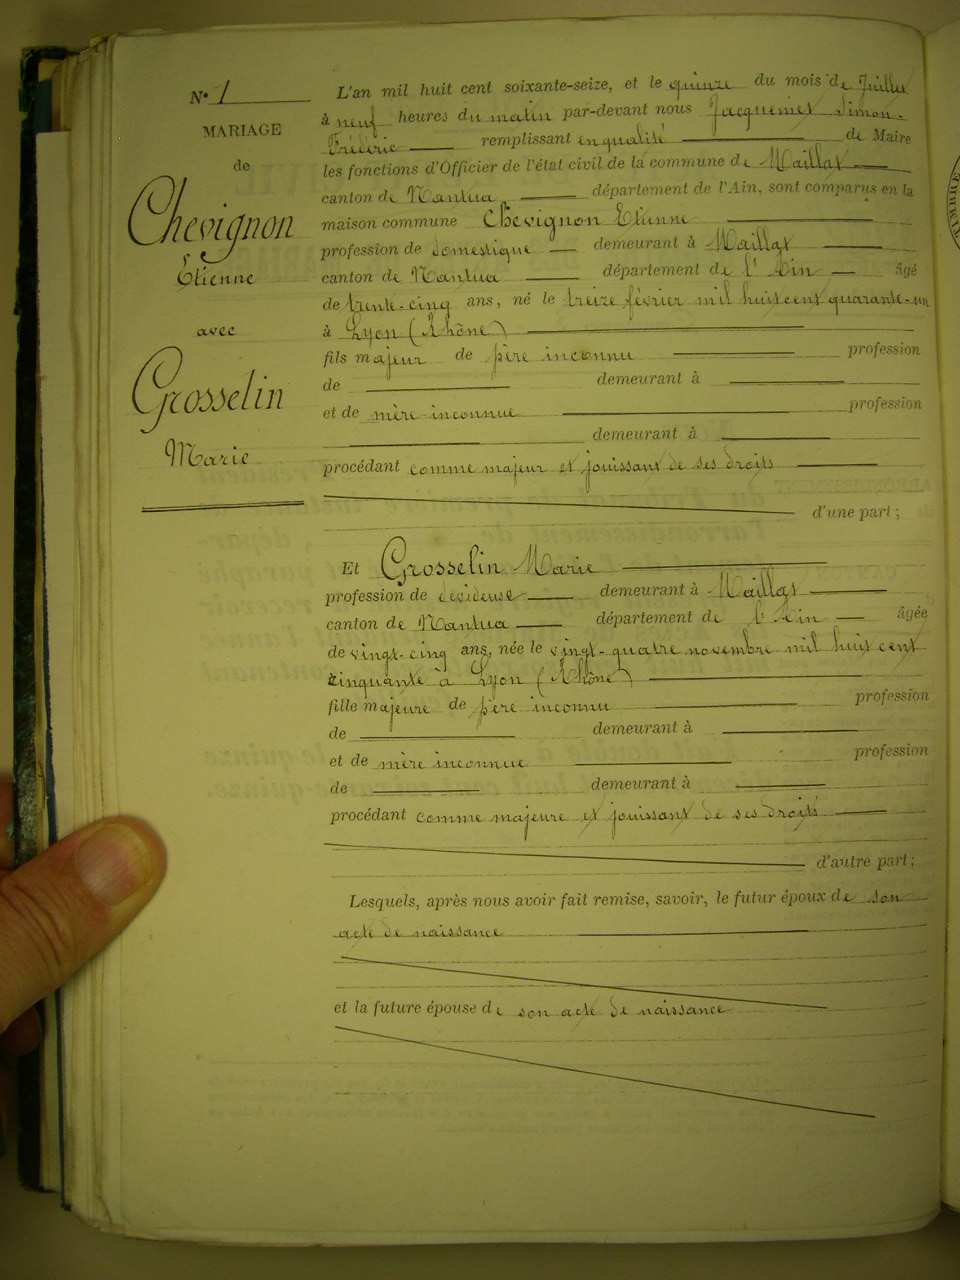 N° 1
MARIAGE
de
Chevignon
Etienne
avec
Grosselin
Marie
L'an mil huit cent soixante-seize, et le quinze du mois de Juillet
à neuf heures du matin par-devant nous Jacquemet Simon-
Fréderic remplissant en qualité de Maire
les fonctions d'Officier de l'état civil de la commune de Maillat
canton de Nantua département de l'Ain, sont comparus en la
maison commune Chevignon Etienne
profession de domestique demeurant à Maillat
canton de Nantua département de l'Ain âgé
de trente-cinq ans, né le treize février mil huit cent quarante-un
à Lyon (Rhône)
fils majeur de père inconnu profession
de demeurant à
et de mère inconnue profession
demeurant à
procédant comme majeur et jouissant de ses droits
d'une part;
Et Grosselin Marie
profession de dévideuse demeurant à Maillat
canton de Nantua département de l'Ain âgée
de vingt-cinq ans, née le vingt-quatre novembre mil huit cent
cinquante à Lyon (Rhône)
fille majeure de père inconnu profession
de demeurant à
et de mère inconnue profession
de demeurant à
procédant comme majeure et jouissant de ses droits
d'autre part;
Lesquels, après nous avoir fait remise, savoir, le futur époux de son
acte de naissance
et la future épouse de son acte de naissance